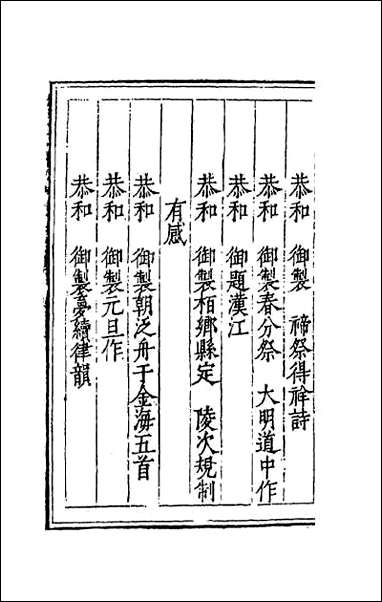 恭和 御製 禘祭得祥詩
恭和 御製春分祭 大明道中作
恭和 御題漢江
恭和 御製栢鄉縣定 陵次規制
有感
恭和 御製朝泛舟于金海五首
恭和 御製元旦作
恭和 御製夢續律韻